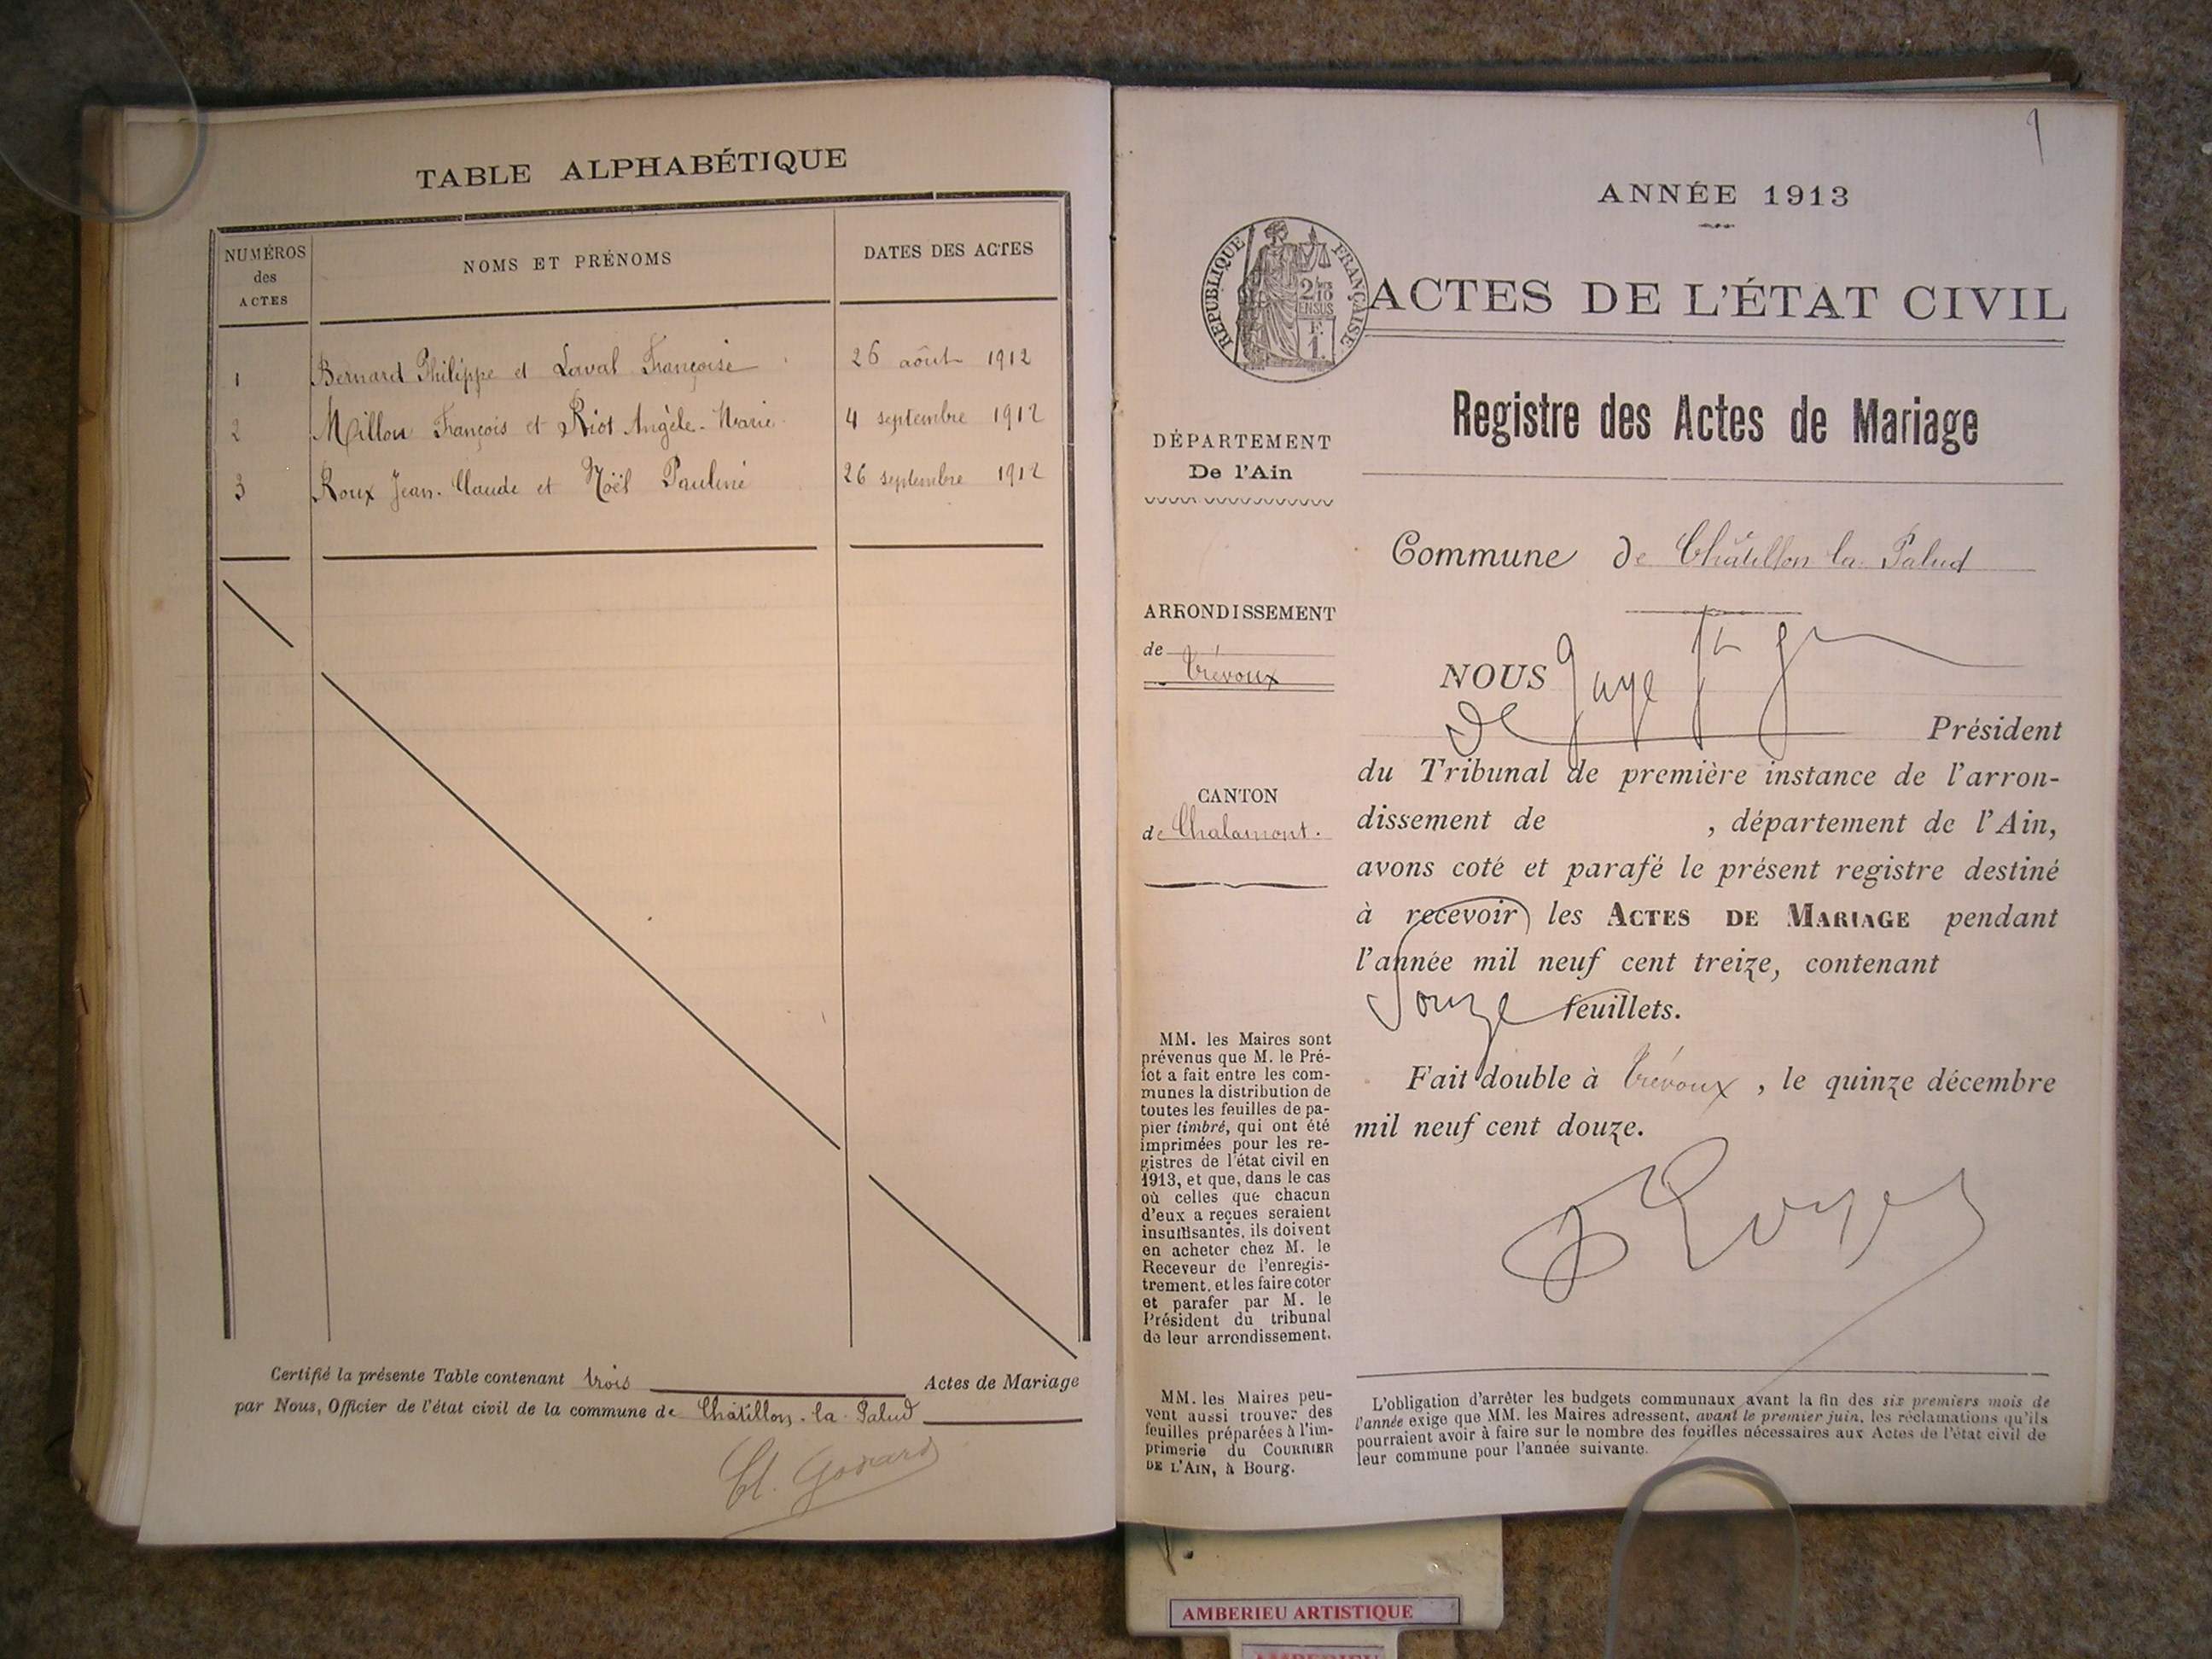 TABLE ALPHABÉTIQUE
NUMÉROS
des
ACTES
NOMS ET PRÉNOMS
DATES DES ACTES
1 Bernard Philippe et Laval Françoise 26 août 1912
2 Millon François et Riot Angèle-Marie 4 septembre 1912
3 Roux Jean-Claude et Noël Pauline 26 septembre 1912
Certifié la présente Table contenant trois Actes de Mariage
par Nous, Officier de l'état civil de la commune de Châtillon-la-Palud
Cl. Godard
1
ANNÉE 1913
RÉPUBLIQUE FRANÇAISE
2/10
EN SUS
F.
1.
ACTES DE L'ÉTAT CIVIL
Registre des Actes de Mariage
DÉPARTEMENT
De l'Ain
ARRONDISSEMENT
de
Trévoux
CANTON
de Chalamont.
MM. les Maires sont
prévenus que M. le Pré-
fet a fait entre les com-
munes la distribution de
toutes les feuilles de pa-
pier timbré, qui ont été
imprimées pour les re-
gistres de l'état civil en
1913, et que, dans le cas
où celles que chacun
d'eux a reçues seraient
insuffisantes, ils doivent
en acheter chez M. le
Receveur de l'enregis-
trement, et les faire coter
et parafer par M. le
Président du tribunal
de leur arrondissement.
MM. les Maires peu-
vent aussi trouver des
feuilles préparées à l'im-
primerie du COURRIER
DE L'AIN, à Bourg.
Commune de Châtillon la Palud
NOUS
Président
du Tribunal de première instance de l'arron-
dissement de , département de l'Ain,
avons coté et parafé le présent registre destiné
à recevoir les ACTES DE MARIAGE pendant
l'année mil neuf cent treize, contenant
feuillets.
Fait double à Trévoux, le quinze décembre
mil neuf cent douze.
L'obligation d'arrêter les budgets communaux avant la fin des six premiers mois de
l'année exige que MM. les Maires adressent, avant le premier juin, les réclamations qu'ils
pourraient avoir à faire sur le nombre des feuilles nécessaires aux Actes de l'état civil de
leur commune pour l'année suivante.
AMBERIEU ARTISTIQUE
AMBERIEU